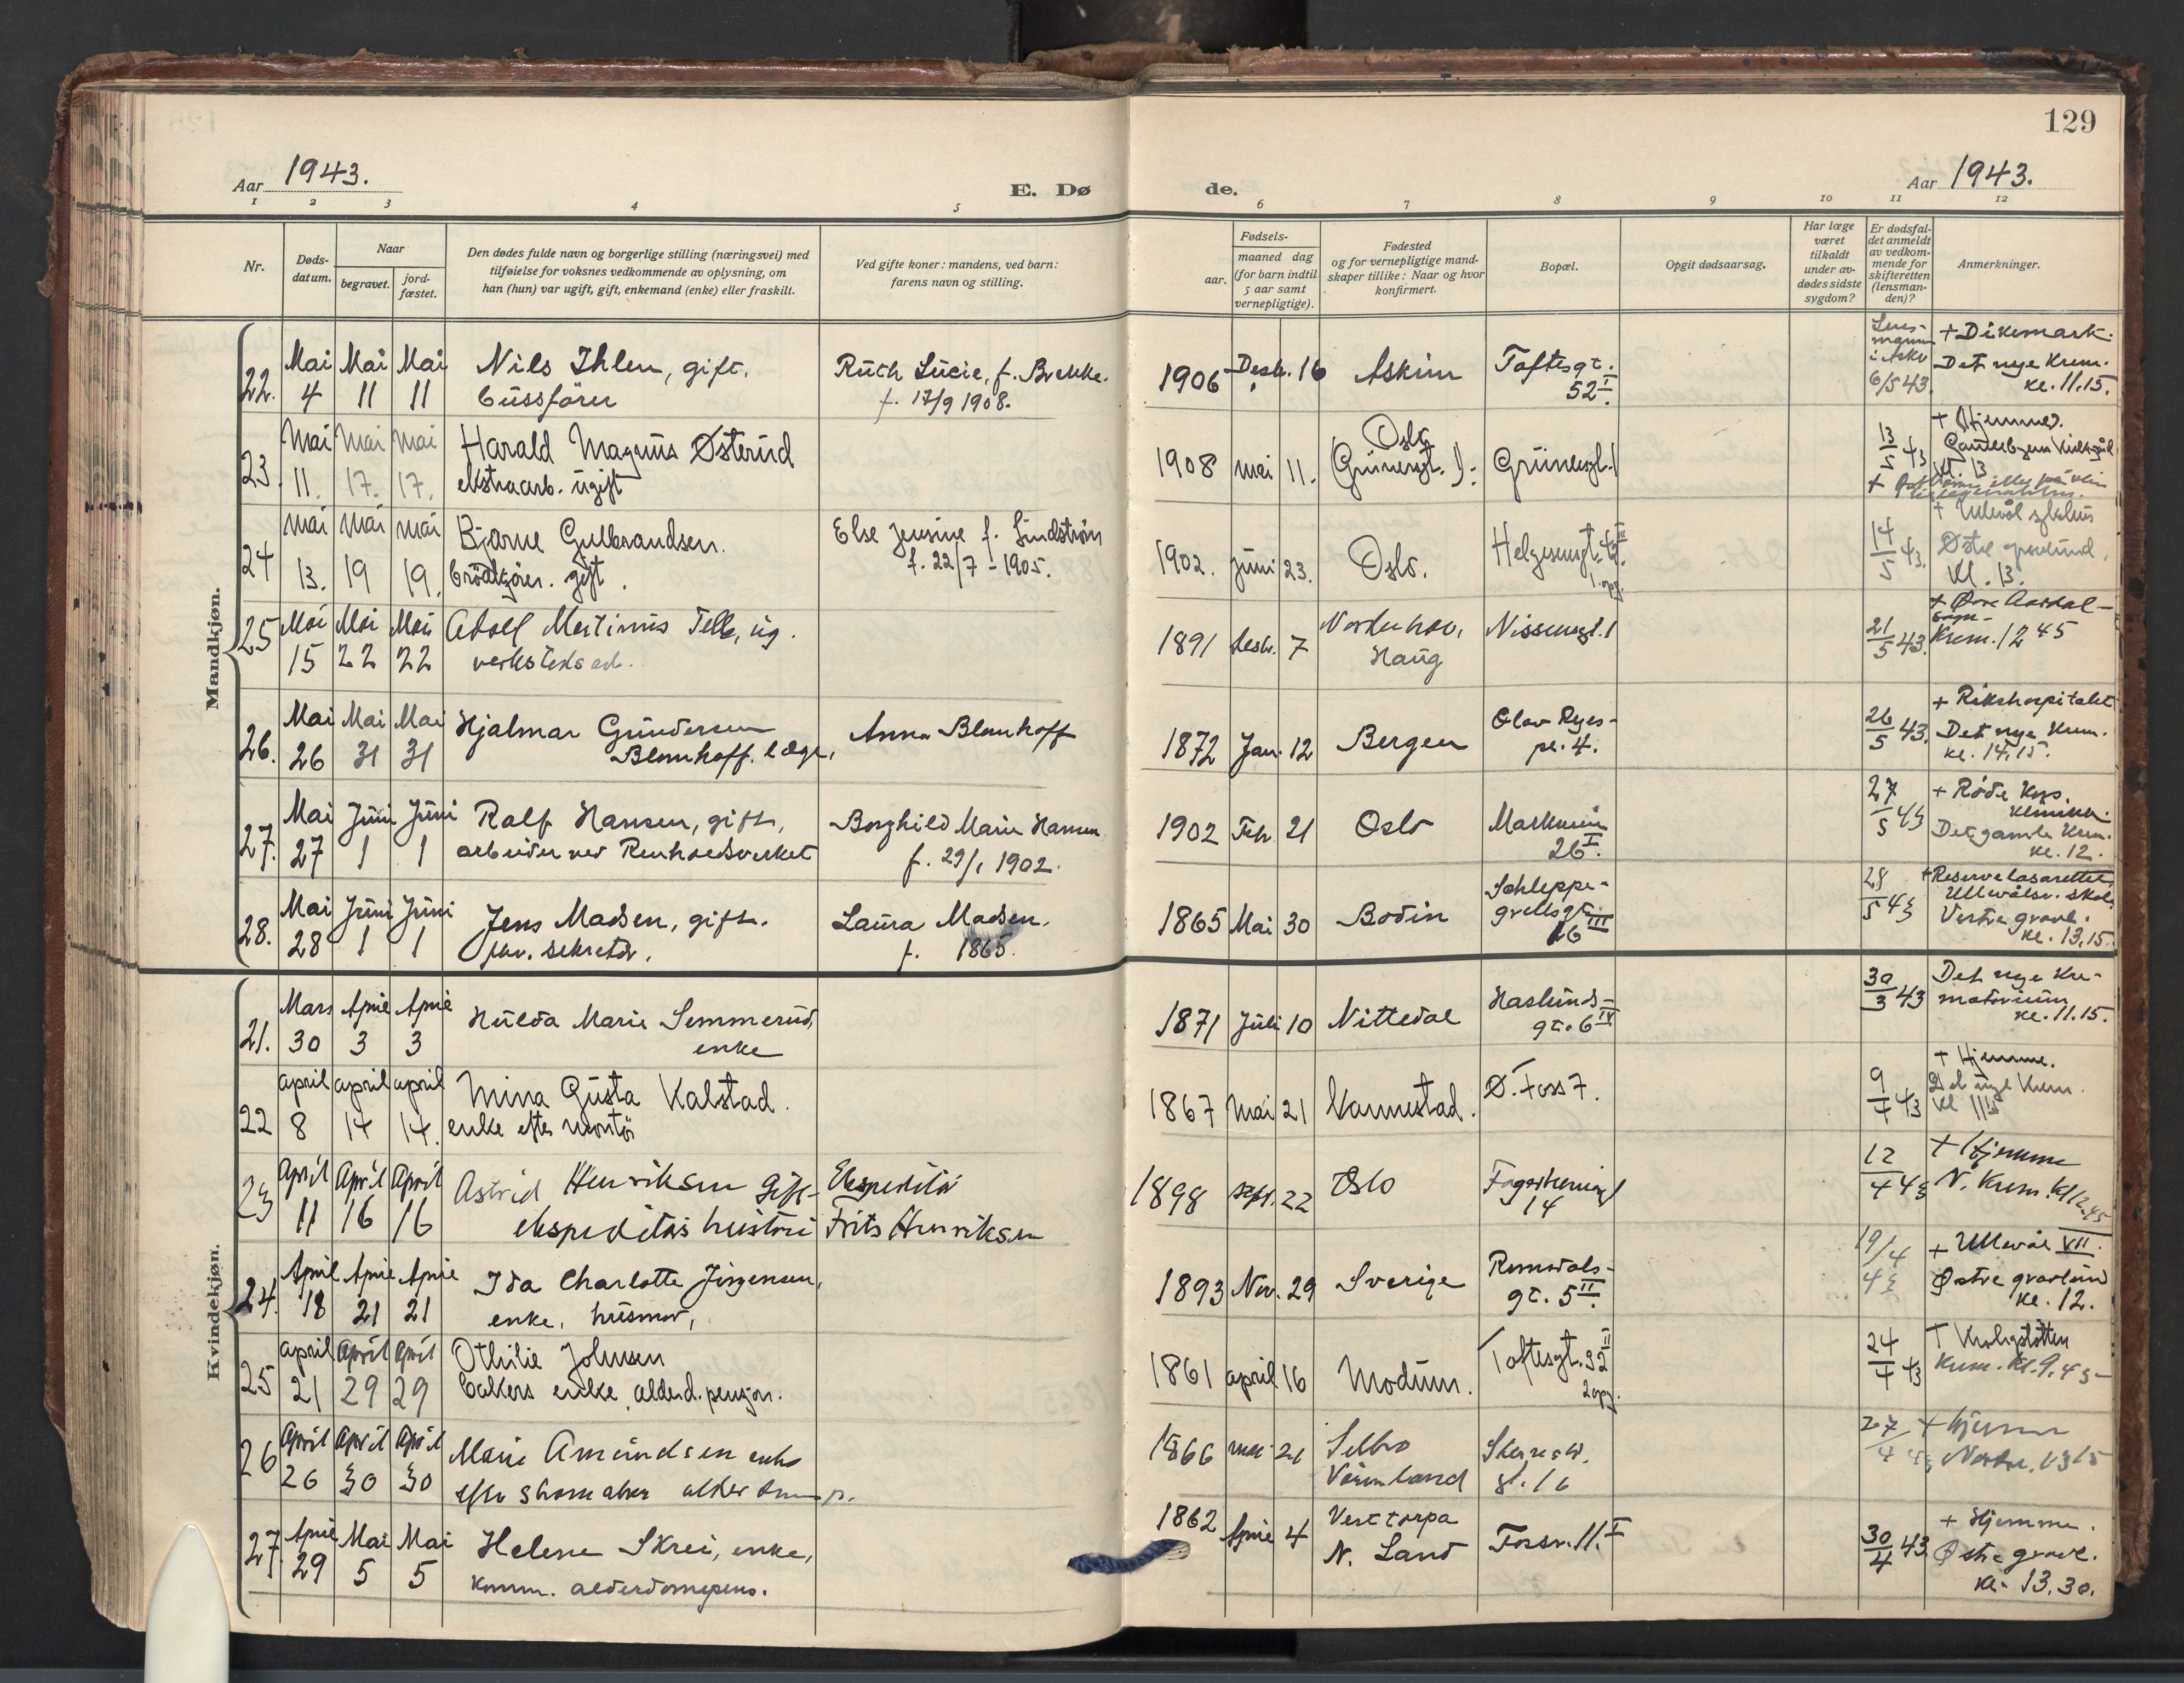 129
Aar 1943.
E. Dø
de.
Aar 1943.
1 2 3 4 5 6 7 8 9 10 11 12
Nr.
Døds-
datum.
Naar
begravet.
jord-
fæstet.
Den dødes fulde navn og borgerlige stilling (næringsvei) med
tilføielse for voksnes vedkommende av oplysning, om
han (hun) var ugift, gift, enkemand (enke) eller fraskilt.
Ved gifte koner: mandens, ved barn:
farens navn og stilling.
Fødsels-
aar.
maaned dag
(for barn indtil
5 aar samt
vernepligtige).
Fødested
og for vernepligtige mand-
skaper tillike: Naar og hvor
konfirmert.
Bopæl.
Opgit dødsaarsag.
Har læge
været
tilkaldt
under av-
dødes sidste
sygdom?
Er dødsfal-
det anmeldt
av vedkom-
mende for
skifteretten
(lensman-
den)?
Anmerkninger.
Mandkjøn.
22. Mai 4 Mai 11 Mai 11
Nils Ihlen, gift.
bussfører
Ruth Lucie, f. Brekke.
f. 17/9 1908.
1906 Desb. 16 Askim
Toftesgt.
52 I.
6/5 43.
+ Dikemark.
Det nye Krem.
kl. 11.15.
23. Mai 11. Mai 17. Mai 17.
Harald Magnus Østerud
ekstraarb. ugift
1908 mai 11.
Oslo
(Grünersgt. 1).
Grünersgt. 1
13/5 43
+ (Hjemme).
kl. 13
24 mai 13. mai 19 mai 19.
Bjarne Gulbrandsen.
brødkjører. gift.
Else Jensine f. Lindstrøm
f. 22/7 - 1905.
1902. juni 23. Oslo.
Helgesensgt.
1. opg.
14/5 43.
+ Ullevål sykehus
Østre gravlund,
Kl. 13.
25 Mai 15 Mai 22 Mai 22
Adolf Martinius Telle, ug.
verkstedsarb.
1891 desb. 7
Norderhov,
Haug
Nissensgt. 1
21/5 43.
+ Øvre Aardal-
Sogn-
Krem. 12 45
26. Mai 26 Mai 31 Mai 31
Hjalmar Gundersen
Blomhoff. læge,
Anna Blomhoff
1872 Jan. 12 Bergen
Olav Ryes-
pl. 4.
26/5 43.
+ Rikshospitalet
Det nye Krem.
kl. 14.15.
27. Mai 27 Juni 1 Juni 1
Ralf Hansen, gift,
arbeider ved Renholdsverket
Borghild Marie Hansen
f. 29/1 1902.
1902 Feb 21 Oslo
Markveien
26 I.
27/5 43
+ Røde Kys.
klinikk.
Det gamle Krem.
kl. 12.
28. Mai 28 Juni 1 Juni 1
Jens Madsen, gift.
fhv. sekretær.
Laura Madsen.
f. 1865.
1865 Mai 30 Bodin
Schleppe-
grellsgt.
16 III
28/5 43
+ Reservelasarettet,
Ullevålsv. skole
Vestre gravl.
kl. 13,15.
Kvindekjøn.
21. Mars 30 April 3 April 3
Hulda Marie Semmerud,
enke
1871 Juli 10 Nittedal
Haslunds-
gt. 6 IV
30/3 43
Det nye Kre-
matorium
kl. 11.15.
22 april 8 april 14 april 14.
Mina Gusta Kalstad.
enke efter montør
1867 mai 21 Nannestad. Ø. Foss 7.
9/4 43
+ Hjemme.
Det nye Krem.
Kl 11 15
23 April 11 April 16 April 16
Astrid Henriksen gift-
ekspeditørs hustru
Ekspeditør
Frits Henriksen
1898 sept. 22 Oslo
14
12/4 43
+ Hjemme
N. Krem. Kl 12.45
24. April 18 April 21 April 21
Ida Charlotte Jørgensen,
enke, husmor,
1893 Nov. 29 Sverige
Romsdals-
gt. 5 II.
19/4 43
+ Ullevål VII.
Østre gravlund
kl. 12.
25 april 21 april 29 april 29
Othilie Johnsen
bakers enke, alderd. pensjon.
1861 april 16 Modum.
Toftesgt. 32 II
2 opg.
24/4 43
+ Krohgstøtten
Krem. Kl. 9.45-
26 April 26 April 30 April 30
Marie Amundsen enke
efter skomaker alderdoms p.
1866 mai 21
Värmland
27/4 43
+ Hjemme
Nordre. 13 15
27. April 29 Mai 5 Mai 5
Helene Skrei, enke,
komm. alderdomspens.
1862 April 4
Vest torpa
N. Land
Fossv. 11. I
30/4 43
+ Hjemme.
Østre gravl.
kl. 13.30.